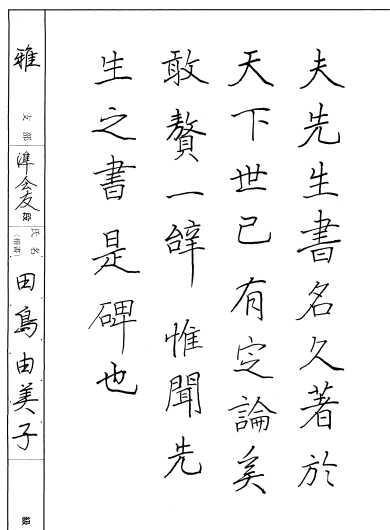 夫先生書名久著於
天下世已有定論矣
敢贅一辭惟聞先
生之書是碑也
雅
支部
準会友
段
氏名
(楷書)
田島由美子